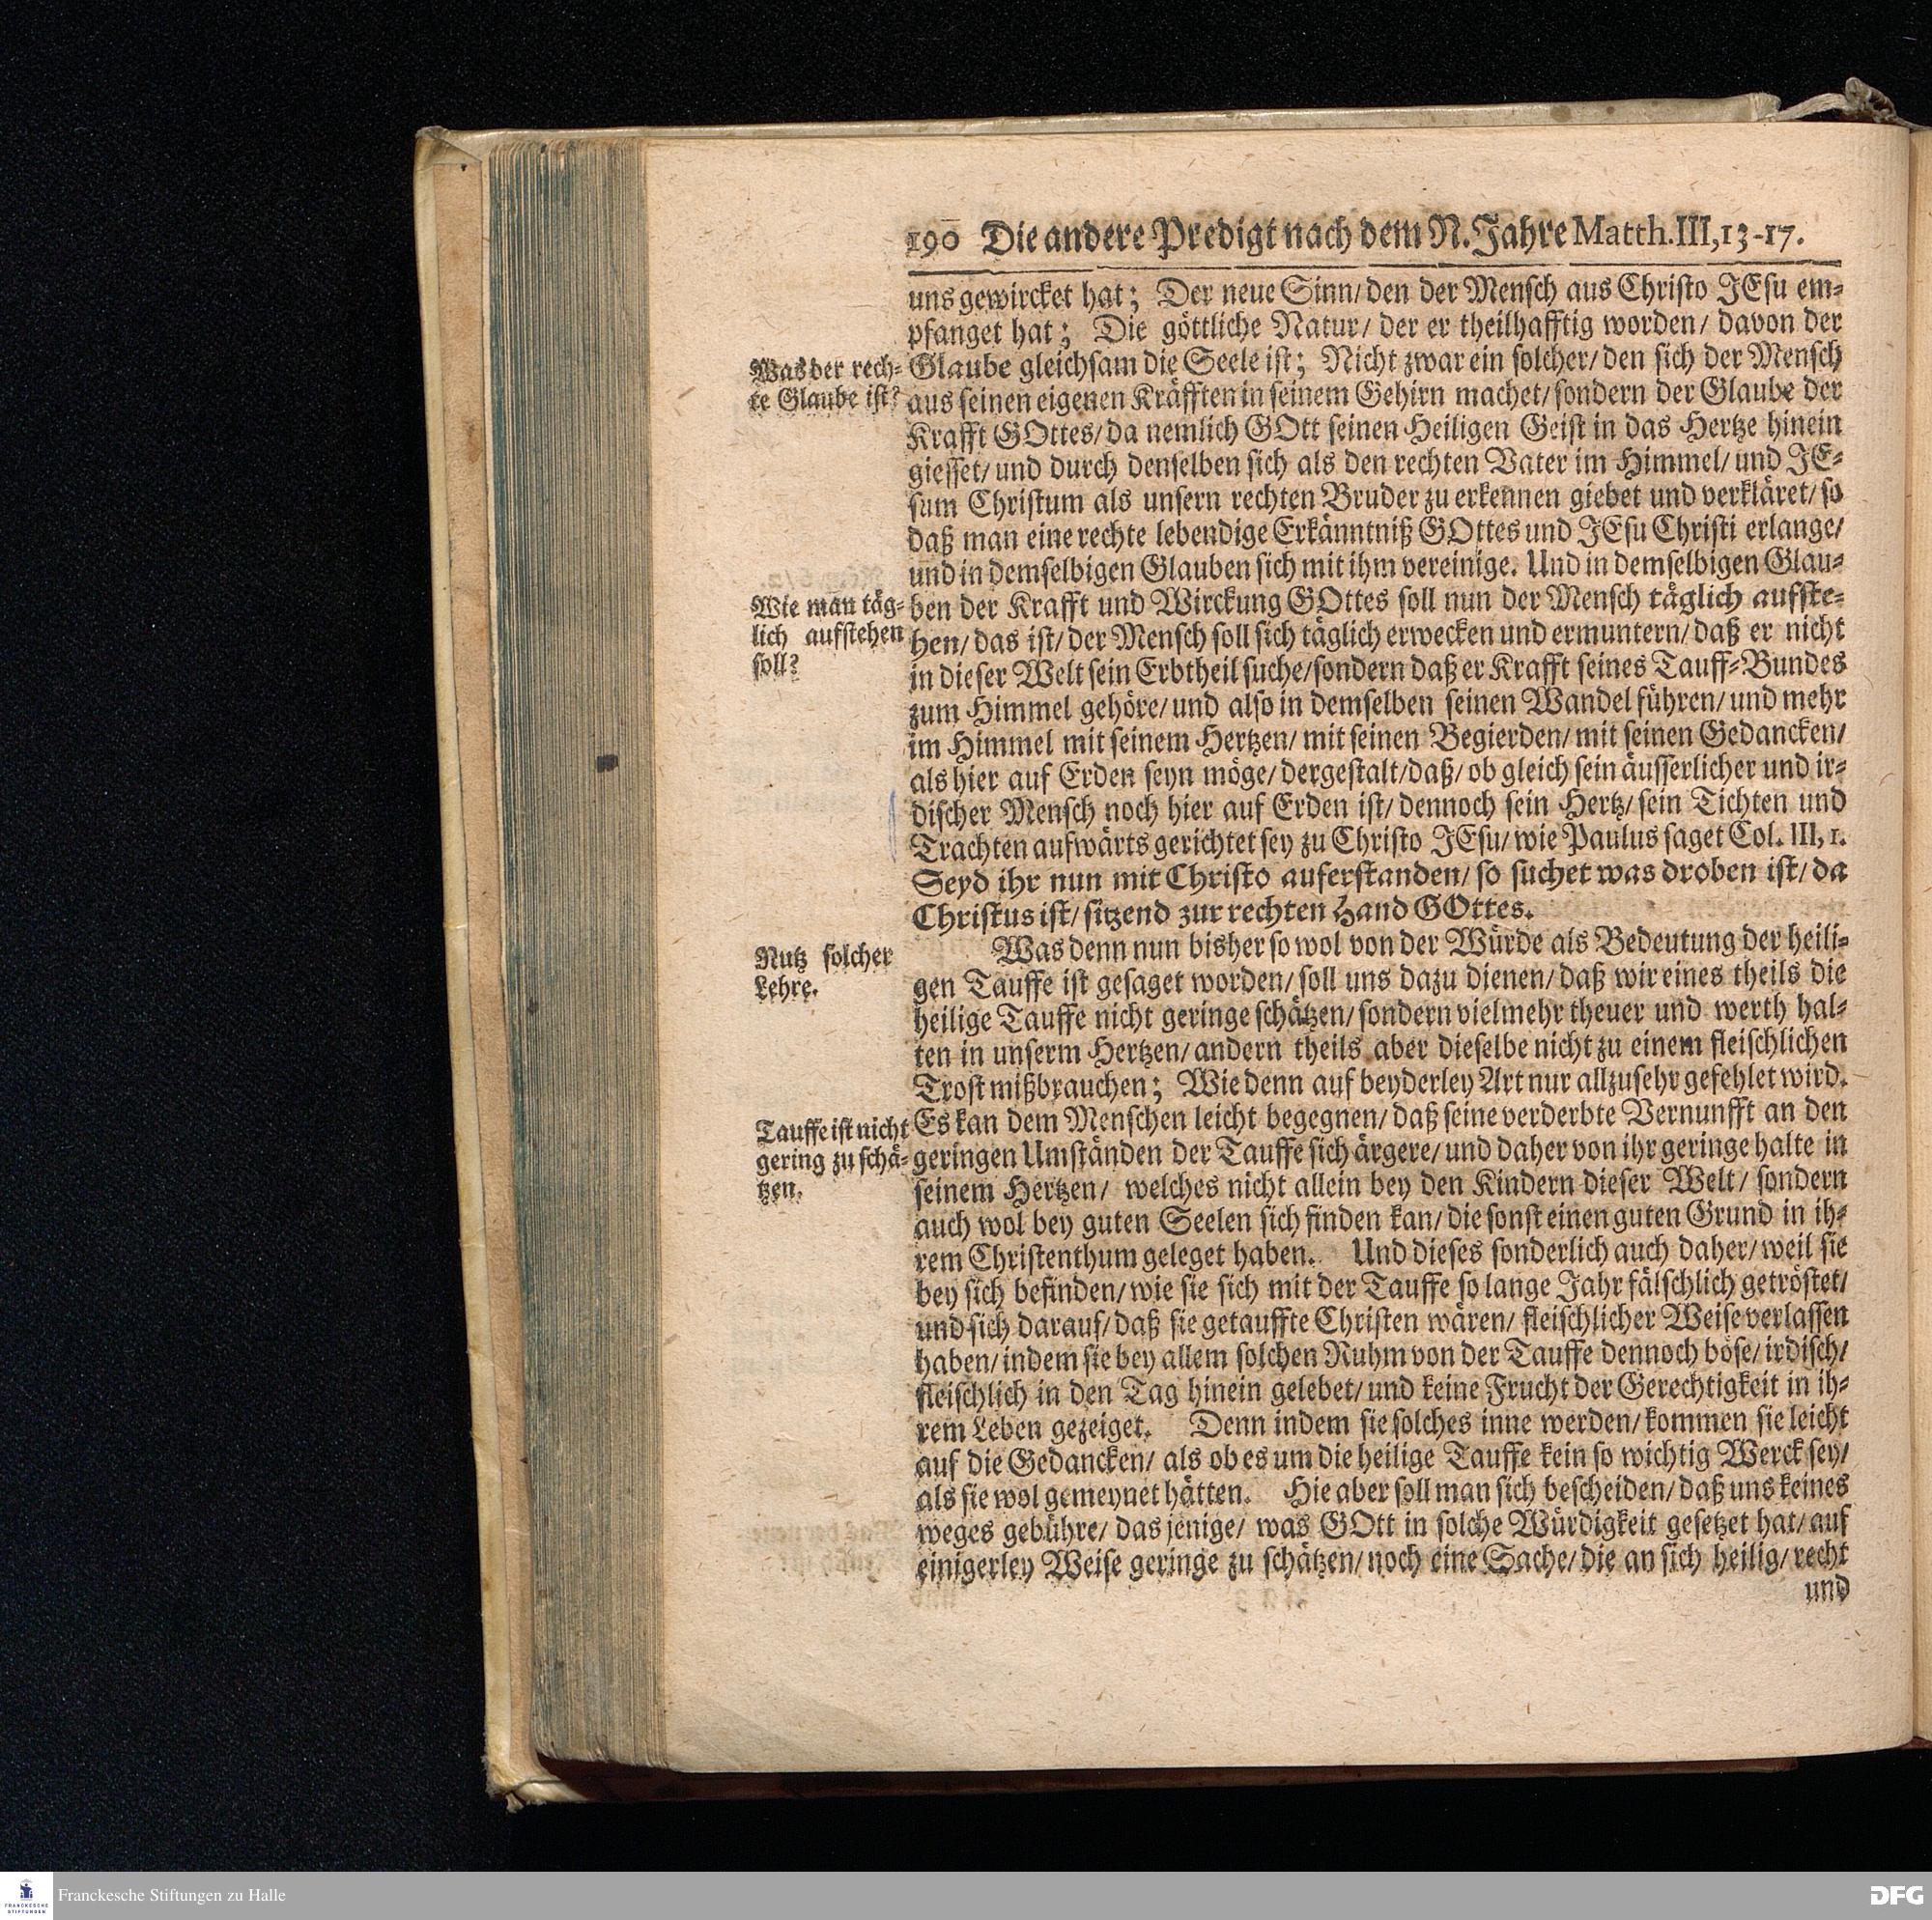 190 Die andere Predigt nach dem N. Jahre Matth. III, 13-17.
uns gewircket hat; Der neue Sinn/ den der Mensch aus Christo JEsu em-
pfanget hat; Die göttliche Natur/ der er theilhafftig worden/ davon der
Was der rech-
te Glaube ist?
Glaube gleichsam die Seele ist; Nicht zwar ein solcher/ den sich der Mensch
aus seinen eigenen Kräfften in seinem Gehirn machet/ sondern der Glaube der
Krafft GOttes/ da nemlich GOtt seinen Heiligen Geist in das Hertze hinein
giesset/ und durch denselben sich als den rechten Vater im Himmel/ und JE-
sum Christum als unsern rechten Bruder zu erkennen giebet und verkläret/ so
daß man eine rechte lebendige Erkänntniß GOttes und JEsu Christi erlange/
und in demselbigen Glauben sich mit ihm vereinige. Und in demselbigen Glau-
Wie man täg-
lich aufstehen
soll?
ben der Krafft und Wirckung GOttes soll nun der Mensch täglich aufste-
hen/ das ist/ der Mensch soll sich täglich erwecken und ermuntern/ daß er nicht
in dieser Welt sein Erbtheil suche/ sondern daß er Krafft seines Tauff-Bundes
zum Himmel gehöre/ und also in demselben seinen Wandel führen/ und mehr
im Himmel mit seinem Hertzen/ mit seinen Begierden/ mit seinen Gedancken/
als hier auf Erden seyn möge/ dergestalt/ daß/ ob gleich sein äusserlicher und ir-
discher Mensch noch hier auf Erden ist/ dennoch sein Hertz/ sein Tichten und
Trachten aufwärts gerichtet sey zu Christo JEsu/ wie Paulus saget Col. III, 1.
Seyd ihr nun mit Christo auferstanden/ so suchet was droben ist/ da
Christus ist/ sitzend zur rechten Hand GOttes.
Nutz solcher
Lehre.
Was denn nun bisher so wol von der Würde als Bedeutung der heili-
gen Tauffe ist gesaget worden/ soll uns dazu dienen/ daß wir eines theils die
heilige Tauffe nicht geringe schätzen/ sondern vielmehr theuer und werth hal-
ten in unserm Hertzen/ andern theils aber dieselbe nicht zu einem fleischlichen
Trost mißbrauchen; Wie denn auf beyderley Art nur allzusehr gefehlet wird.
Tauffe ist nicht
gering zu schä-
tzen.
Es kan dem Menschen leicht begegnen/ daß seine verderbte Vernunfft an den
geringen Umständen der Tauffe sich ärgere/ und daher von ihr geringe halte in
seinem Hertzen/ welches nicht allein bey den Kindern dieser Welt/ sondern
auch wol bey guten Seelen sich finden kan/ die sonst einen guten Grund in ih-
rem Christenthum geleget haben. Und dieses sonderlich auch daher/ weil sie
bey sich befinden/ wie sie sich mit der Tauffe so lange Jahr fälschlich getröstet/
und sich darauf/ daß sie getauffte Christen wären/ fleischlicher Weise verlassen
haben/ indem sie bey allem solchen Ruhm von der Tauffe dennoch böse/ irdisch/
fleischlich in den Tag hinein gelebet/ und keine Frucht der Gerechtigkeit in ih-
rem Leben gezeiget. Denn indem sie solches inne werden/ kommen sie leicht
auf die Gedancken/ als ob es um die heilige Tauffe kein so wichtig Werck sey/
als sie wol gemeynet hätten. Hie aber soll man sich bescheiden/ daß uns keines
weges gebühre/ das jenige/ was GOtt in solche Würdigkeit gesetzet hat/ auf
einigerley Weise geringe zu schätzen/ noch eine Sache/ die an sich heilig/ recht
und
FRANCKESCHE
STIFTUNGEN
Franckesche Stiftungen zu Halle
DFG